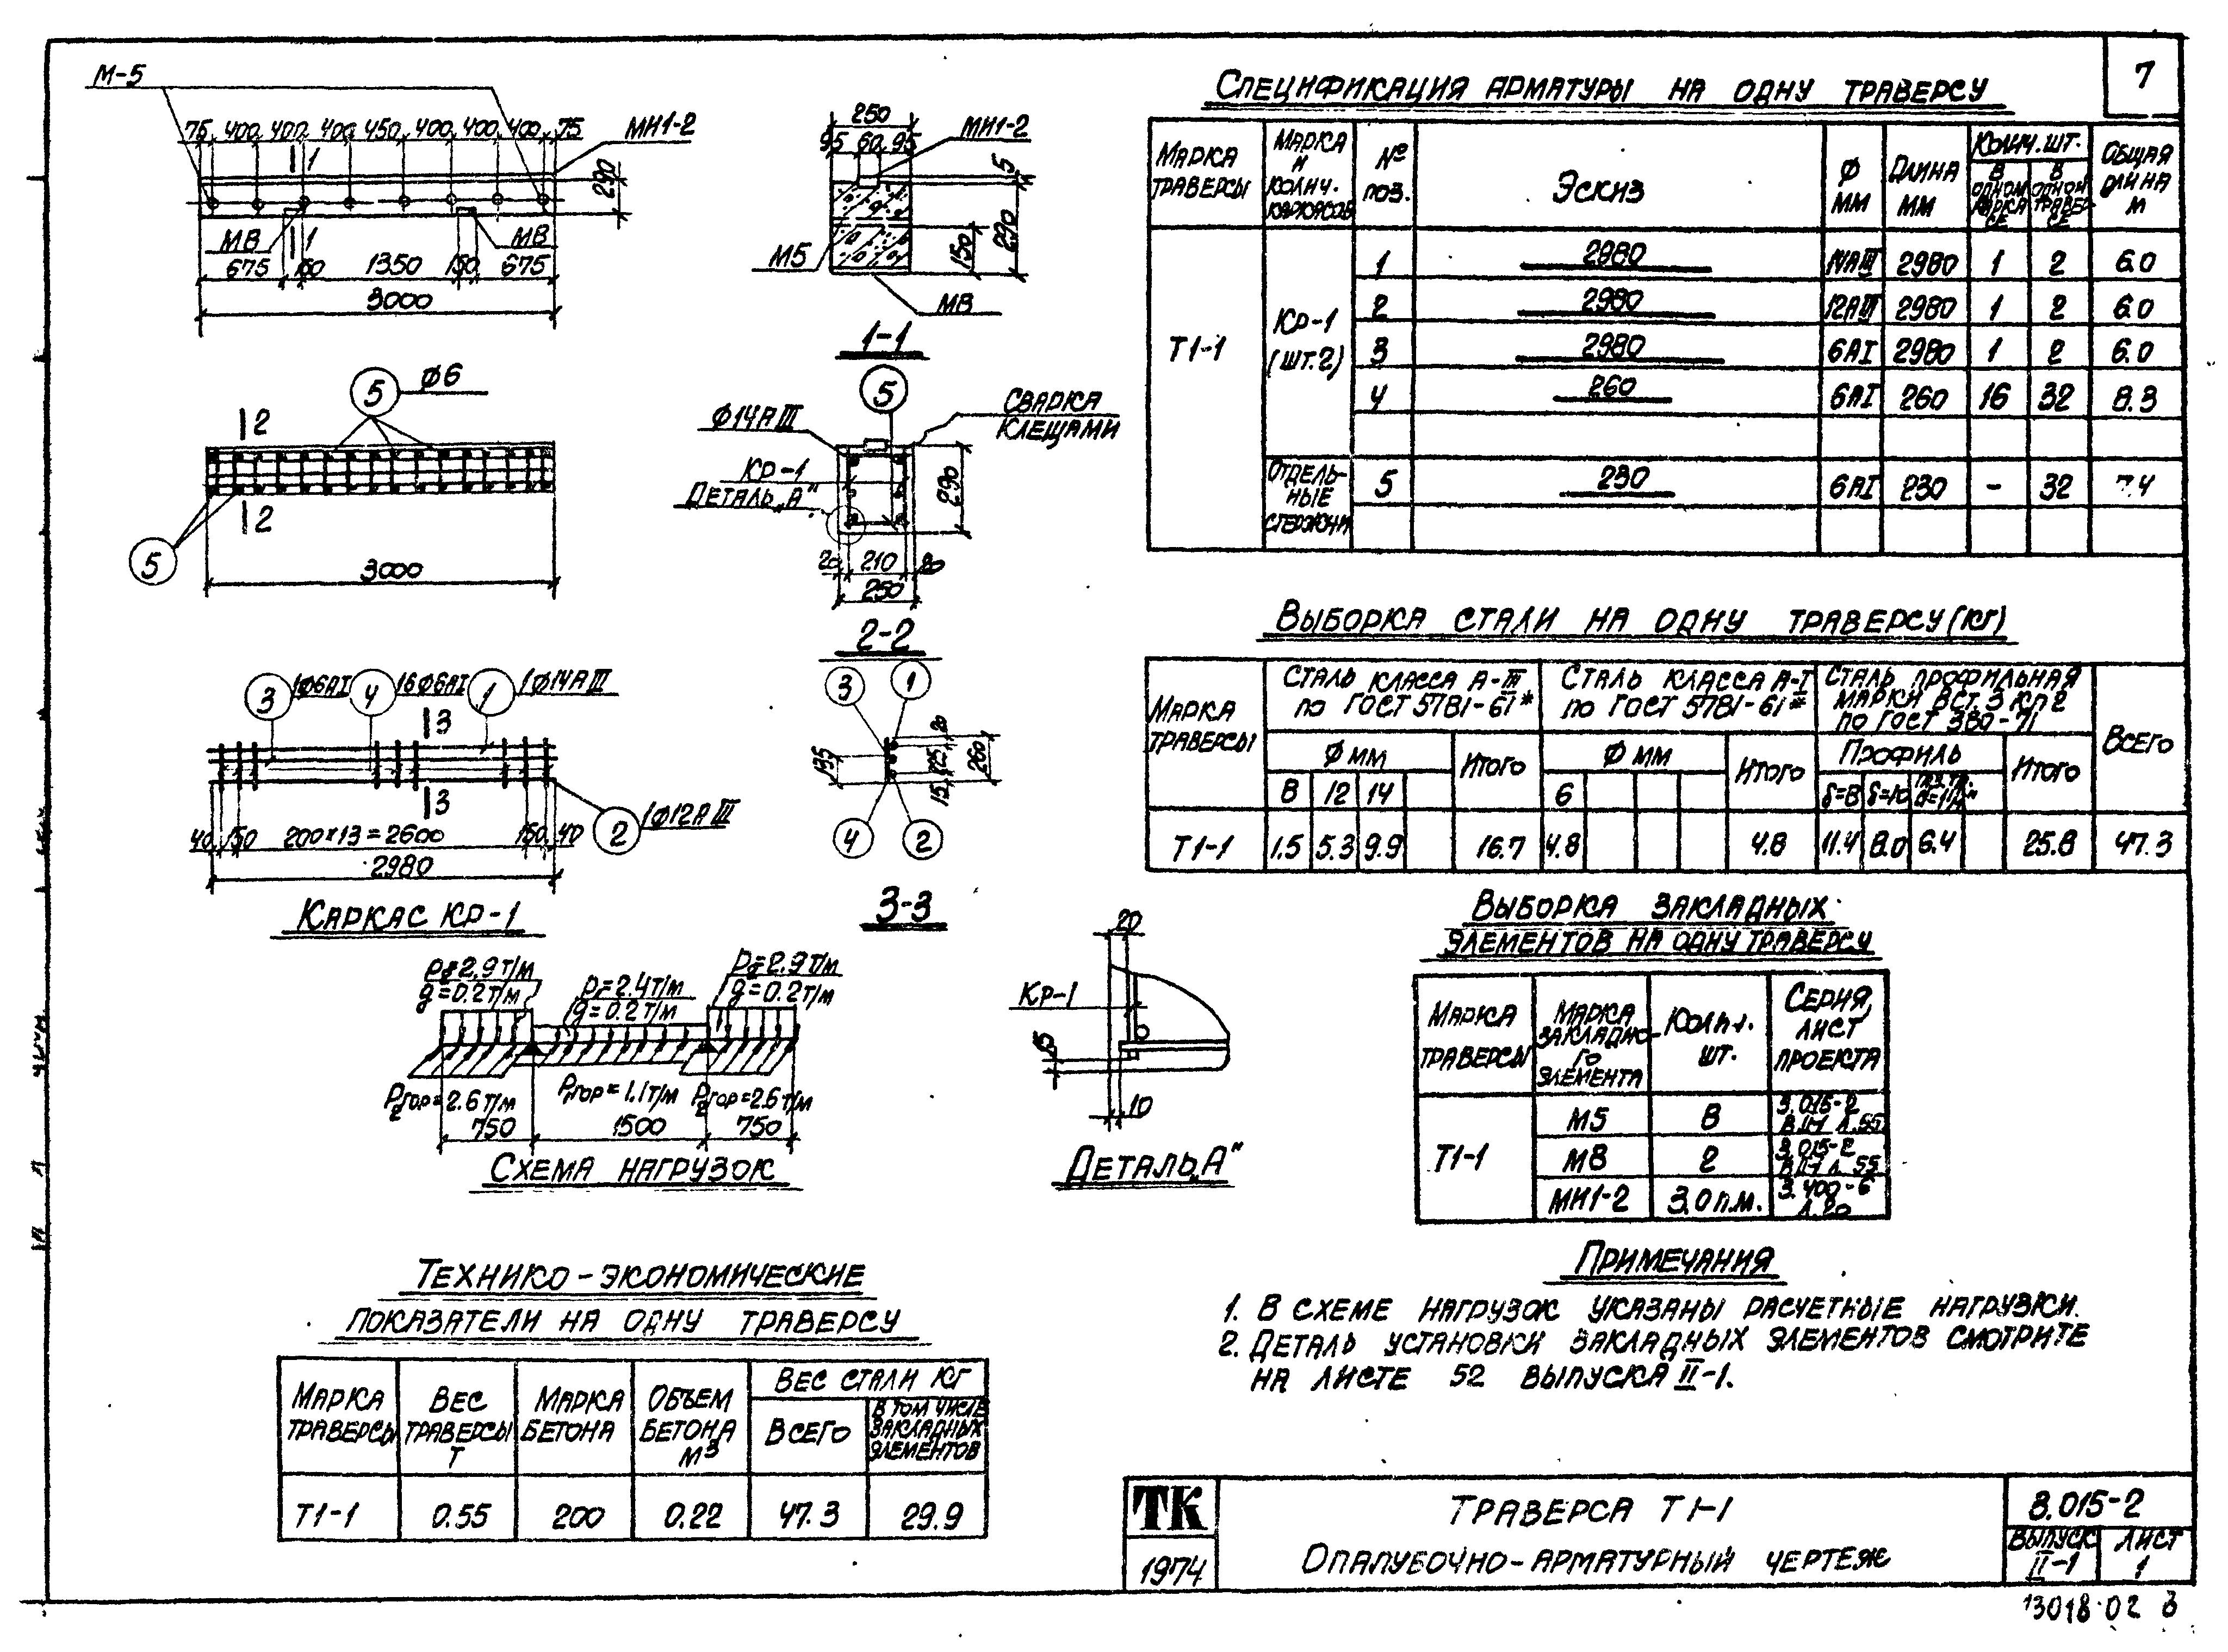 7
М-5
75 400 400 400 450 400 400 400 75
МН1-2
1
290
М8 М8
1
675 150 1350 150 675
3000
250
95 60 95
МН1-2
5
290
150
М5
М8
1-1
5 Ф6
2
2
5
3000
5
Ф14АIII
СВАРКА
КЛЕЩАМИ
КР-1
ДЕТАЛЬ „А"
290
20 210 20
250
2-2
3 1Ф6АI 4 16Ф6АI 1 1Ф14АIII
3
3
2 1Ф12АIII
40 150 200×13=2600 150 40
2980
КАРКАС КР-1
3 1
195
20
225
15
260
4 2
3-3
P₂=2.9Т/М
g=0.2Т/М
P₁=2.4Т/М
g=0.2Т/М
P₂=2.9Т/М
g=0.2Т/М
P₂ГОР=2.6Т/М
P₁ГОР=1.1Т/М
P₂ГОР=2.6Т/М
750 1500 750
СХЕМА НАГРУЗОК
20
КР-1
15
10
ДЕТАЛЬ „А"
СПЕЦИФИКАЦИЯ АРМАТУРЫ НА ОДНУ ТРАВЕРСУ
МАРКА ТРАВЕРСЫ
МАРКА И КОЛИЧ. КАРКАСОВ
№ ПОЗ.
ЭСКИЗ
Ф ММ
ДЛИНА ММ
КОЛИЧ. ШТ.
В ОДНОМ КАРКАСЕ
В ОДНОЙ ТРАВЕРСЕ
ОБЩАЯ ДЛИНА М
Т1-1
КР-1
(ШТ.2)
1 2980 14АIII 2980 1 2 6.0
2 2980 12АIII 2980 1 2 6.0
3 2980 6АI 2980 1 2 6.0
4 260 6АI 260 16 32 8.3
ОТДЕЛЬ-
НЫЕ
СТЕРЖНИ
5 230 6АI 230 - 32 7.4
ВЫБОРКА СТАЛИ НА ОДНУ ТРАВЕРСУ (КГ)
МАРКА ТРАВЕРСЫ
СТАЛЬ КЛАССА А-III
ПО ГОСТ 5781-61*
СТАЛЬ КЛАССА А-I
ПО ГОСТ 5781-61*
СТАЛЬ ПРОФИЛЬНАЯ
МАРКИ ВСТ.3 КП2
ПО ГОСТ 380-71
ВСЕГО
Ф ММ ИТОГО Ф ММ ИТОГО ПРОФИЛЬ ИТОГО
8 12 14 6 δ=8 δ=10
Т1-1 1.5 5.3 9.9 16.7 4.8 4.8 11.4 8.0 6.4 25.8 47.3
ВЫБОРКА ЗАКЛАДНЫХ
ЭЛЕМЕНТОВ НА ОДНУ ТРАВЕРСУ
МАРКА ТРАВЕРСЫ
МАРКА ЗАКЛАДНО-
ГО ЭЛЕМЕНТА
КОЛИЧ. ШТ.
СЕРИЯ, ЛИСТ ПРОЕКТА
Т1-1
М5 8 3.015-2
В.II-1 Л.55
М8 2 3.015-2
В.II-1 Л.55
МН1-2 3.0 П.М. 3.400-6
Л.20
ПРИМЕЧАНИЯ
1. В СХЕМЕ НАГРУЗОК УКАЗАНЫ РАСЧЕТНЫЕ НАГРУЗКИ.
2. ДЕТАЛЬ УСТАНОВКИ ЗАКЛАДНЫХ ЭЛЕМЕНТОВ СМОТРИТЕ
НА ЛИСТЕ 52 ВЫПУСКА II-1.
ТЕХНИКО-ЭКОНОМИЧЕСКИЕ
ПОКАЗАТЕЛИ НА ОДНУ ТРАВЕРСУ
МАРКА ТРАВЕРСЫ
ВЕС ТРАВЕРСЫ Т
МАРКА БЕТОНА
ОБЪЕМ БЕТОНА М³
ВЕС СТАЛИ КГ
ВСЕГО
В ТОМ ЧИСЛЕ ЗАКЛАДНЫХ ЭЛЕМЕНТОВ
Т1-1 0.55 200 0.22 47.3 29.9
ТК
1974
ТРАВЕРСА Т1-1
ОПАЛУБОЧНО-АРМАТУРНЫЙ ЧЕРТЕЖ
3.015-2
ВЫПУСК II-1
ЛИСТ 1
13018-02 8